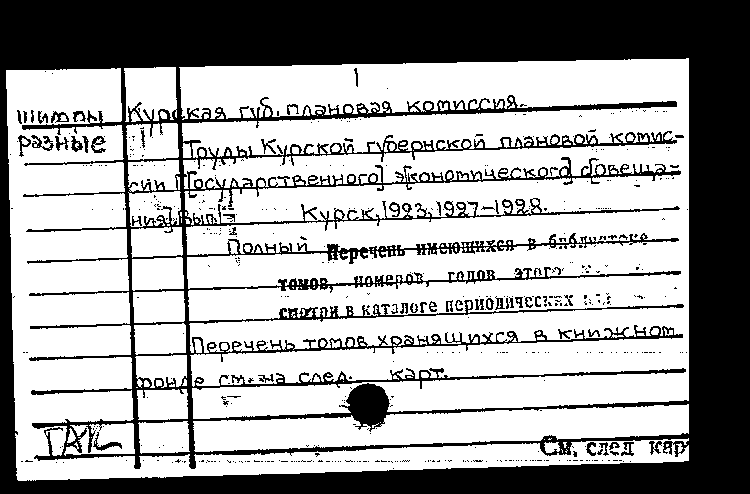 1
шифры Курская губ. плановая комиссия.
разные
Труды Курской губернской плановой комис-
сии [Государственного] э[кономического] с[овеща-
ния]. Вып.
Курск, 1923, 1927-1928.
Полный Перечень имеющихся в библиотеке
томов, номеров, годов этого
смотри в каталоге периодических
Перечень томов, хранящихся в книжном
фонде см. на след. карт.
ГАК
См. след кар